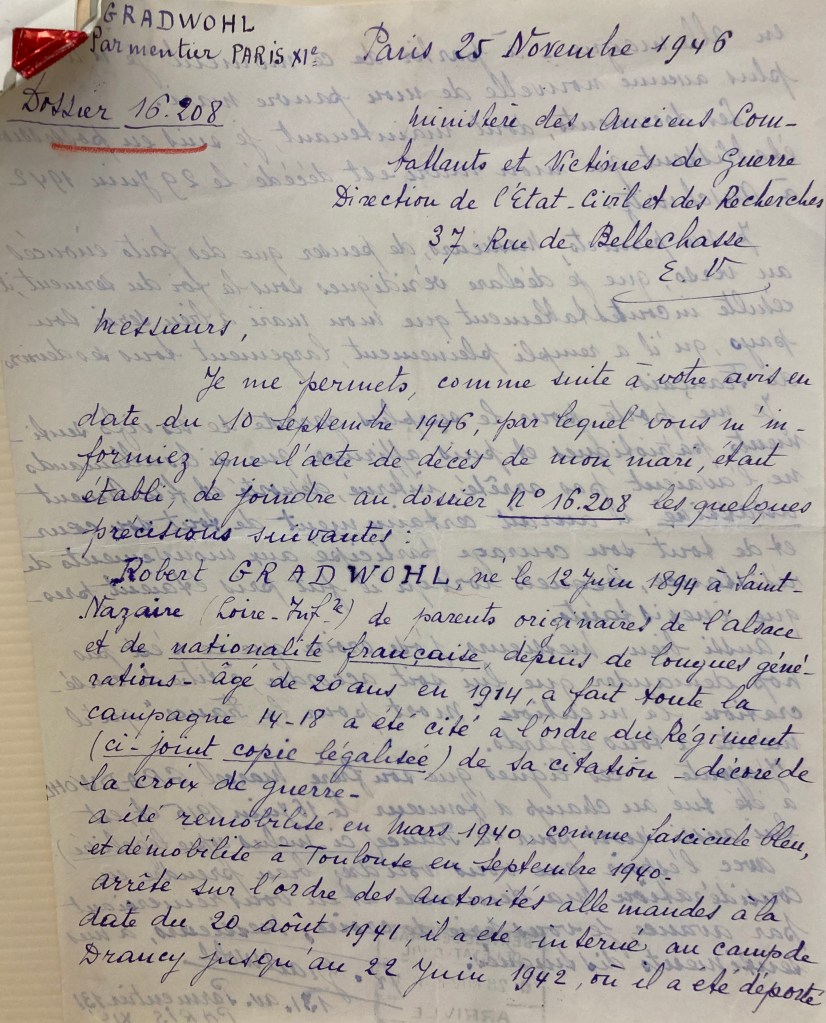 GRADWOHL
Parmentier PARIS XIe
Paris 25 Novembre 1946
Dossier 16.208
Ministère des Anciens Com-
battants et Victimes de Guerre
Direction de l'Etat-Civil et des Recherches
37 Rue de Bellechasse
E. V
Messieurs,
Je me permets, comme suite à votre avis en
date du 10 Septembre 1946, par lequel vous m'in-
formiez que l'acte de décès de mon mari, était
établi, de joindre au dossier N° 16.208 les quelques
précisions suivantes :
Robert GRADWOHL, né le 12 Juin 1894 à Saint-
Nazaire (Loire-Infre) de parents originaires de l'alsace
et de nationalité française, depuis de longues géné-
rations - âgé de 20 ans en 1914, a fait toute la
campagne 14-18 a été cité à l'ordre du Régiment
(ci-joint copie légalisée) de sa citation - décoré de
la croix de guerre -
a été remobilisé en Mars 1940 comme fascicule bleu,
et démobilisé à Toulouse en Septembre 1940 -
arrêté sur l'ordre des autorités allemandes à la
date du 20 août 1941, il a été interné au camp de
Drancy jusqu'au 22 Juin 1942, où il a été déporté